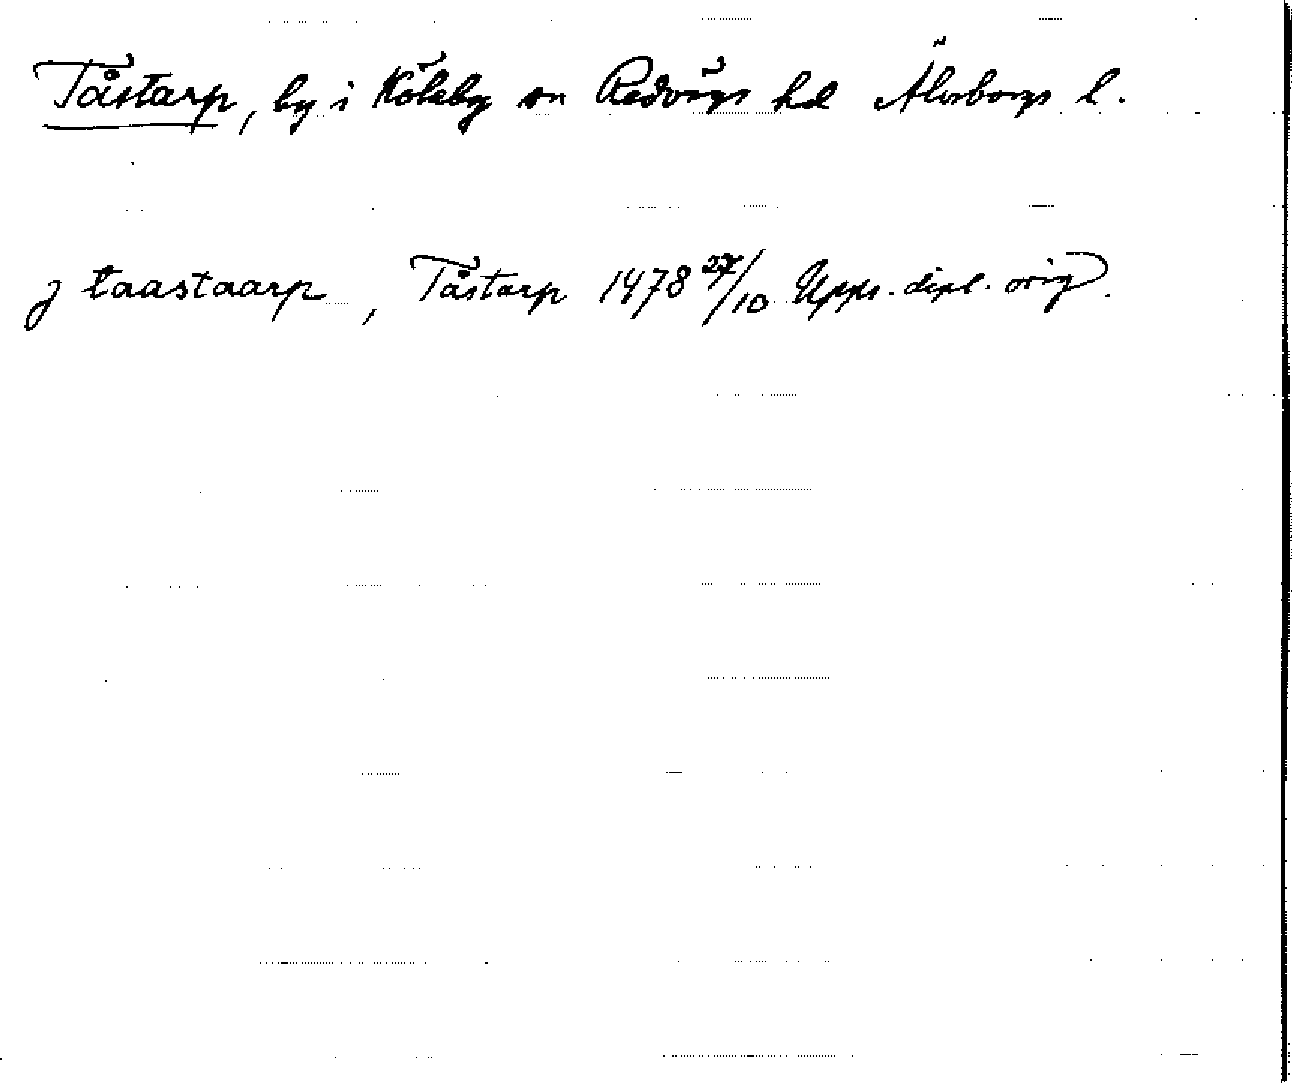 Tåstarp, by i Kölaby sn Redvägs hd Älvsborgs l.
j taastaarp, Tåstarp 1478 27/10 Upps. dipl. orig.